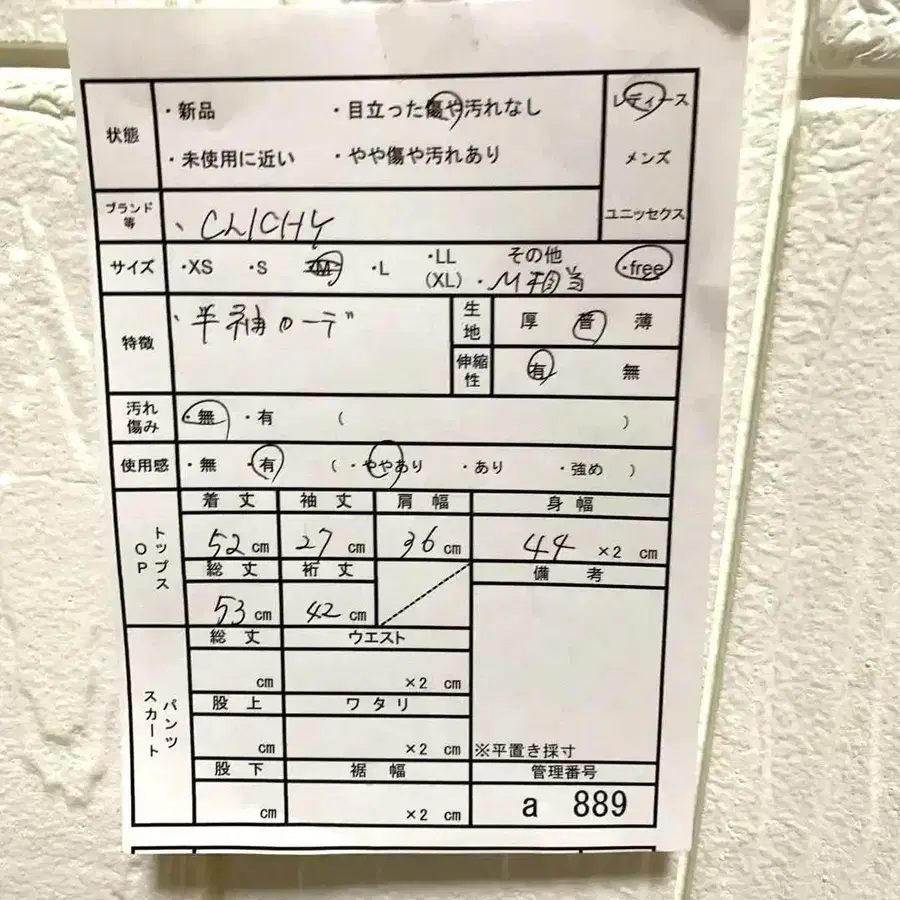 状態
・新品 ・目立った傷や汚れなし
・未使用に近い ・やや傷や汚れあり
レディース
メンズ
ユニッセクス
ブランド等
、CLICHY
サイズ ・XS ・S ・M ・L ・LL(XL) その他 ・M相当 ・free
特徴
、半袖ローデ
生地 厚 普 薄
伸縮性 有 無
汚れ傷み ・無 ・有 ( )
使用感 ・無 ・有 ( ・ややあり ・あり ・強め )
トップス OP
着丈 袖丈 肩幅 身幅
52 cm 27 cm 36 cm 44 ×2 cm
総丈 裄丈 備考
53 cm 42 cm
パンツ スカート
総丈 ウエスト
cm ×2 cm
股上 ワタリ
cm ×2 cm
※平置き採寸
股下 裾幅 管理番号
cm ×2 cm
a 889